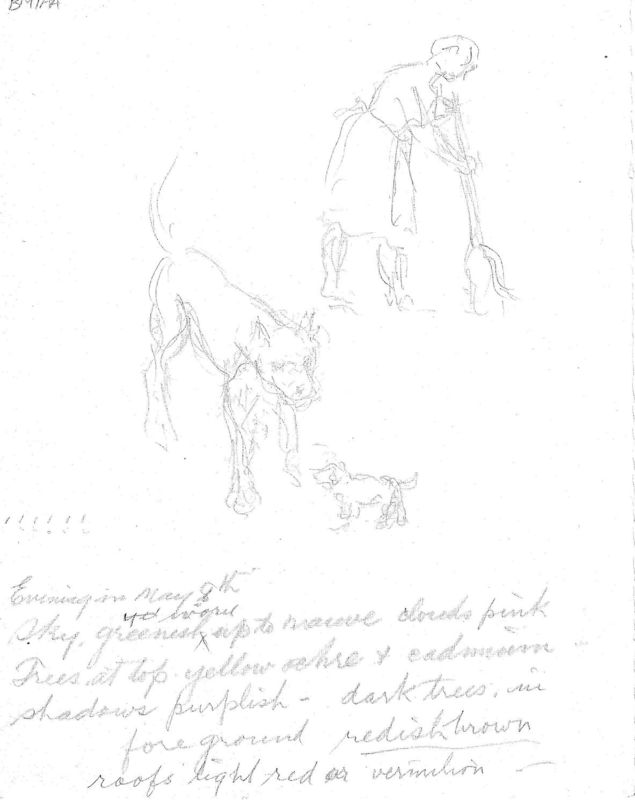 Evening in May 8th
Sky, greenish up to mauve clouds pink
Trees at top yellow ochre & cadmium -
shadows purplish - dark trees, in
fore ground redish brown
roofs light red or vermilion -